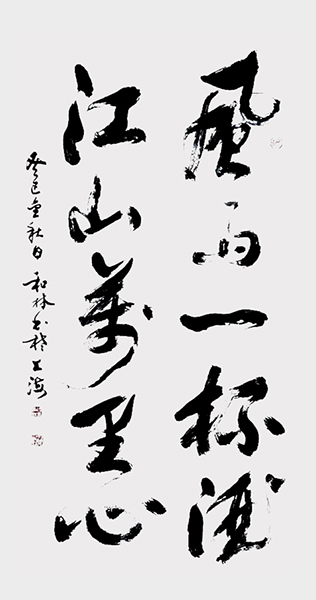 風雨一杯酒
江山萬里心
癸巳金秋日和林書於上海